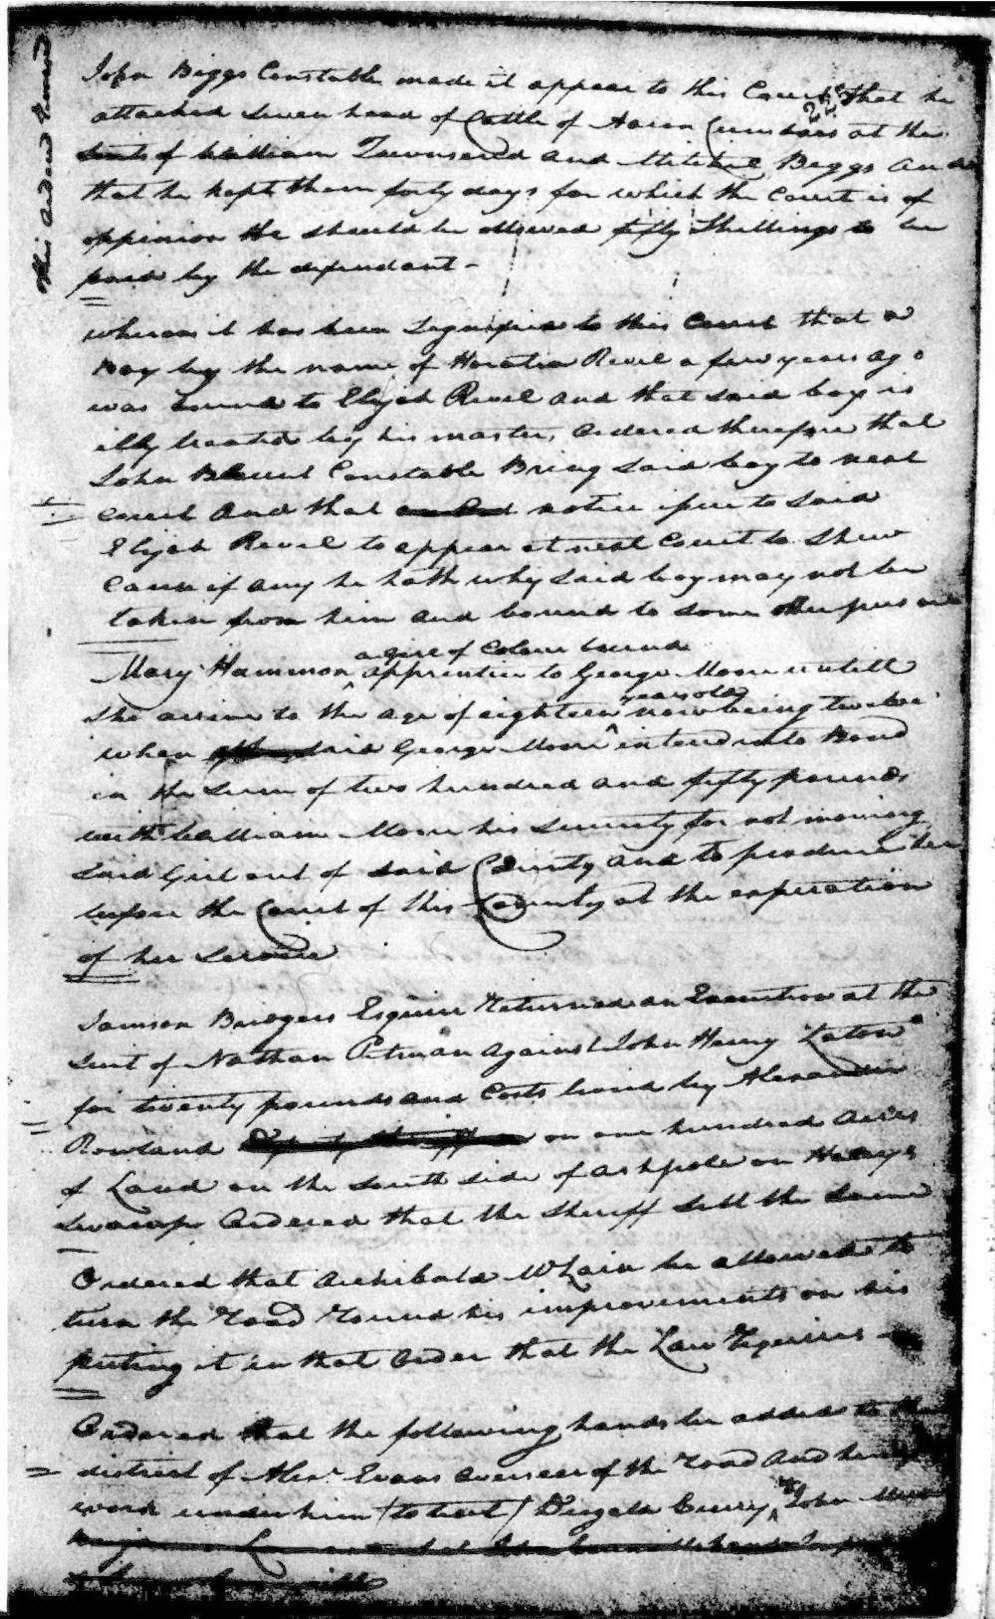 John Biggs Constable made it appear to this Court that he
attached seven head of Cattle of Aaron at the
Suit of William Townsend and Mitchel Biggs and
that he kept them forty days for which the Court is of
oppinion He should be allowed fifty Shillings to be
paid by the defendant -
whereas it has been Signified to this Court that a
Boy by the name of Horatio Revel a few years ago
was bound to Elijah Revel and that said boy is
illy treated by his master, Ordered therefore that
John Blount Constable Bring said boy to next
Court And that notice issue to said
Elijah Revel to appear at next Court to Shew
Cause if any he hath why said boy may not be
taken from him and bound to some other person
a girl of Colour bound
Mary Hammon apprentice to George Moore untill
years old
She arrive to the age of eighteen now being twelve
when said George Moore intend into Bond
in the sum of two hundred and fifty pounds
with William Moore his security for not moving
said Girl out of said County and to produce her
before the Court of this County at the expiration
of her Service
Jamson Bridgers Esquire Returned an Execution at the
Suit of Nathan Pitman against John Henry
for twenty pounds and Costs levied by Alexander
Rowland on one hundred Acres
of Land on the south side of ashpole on
Swamp Ordered that the Sheriff Sell the Same
Ordered that Archibald McLain be allowed to
turn the road round his improvements on his
puting it in that Order that the Law requires
Ordered that the following hands be added to the
district of Alexr Evans overseer of the road And
work under him (to wit) Dugald Curry, John